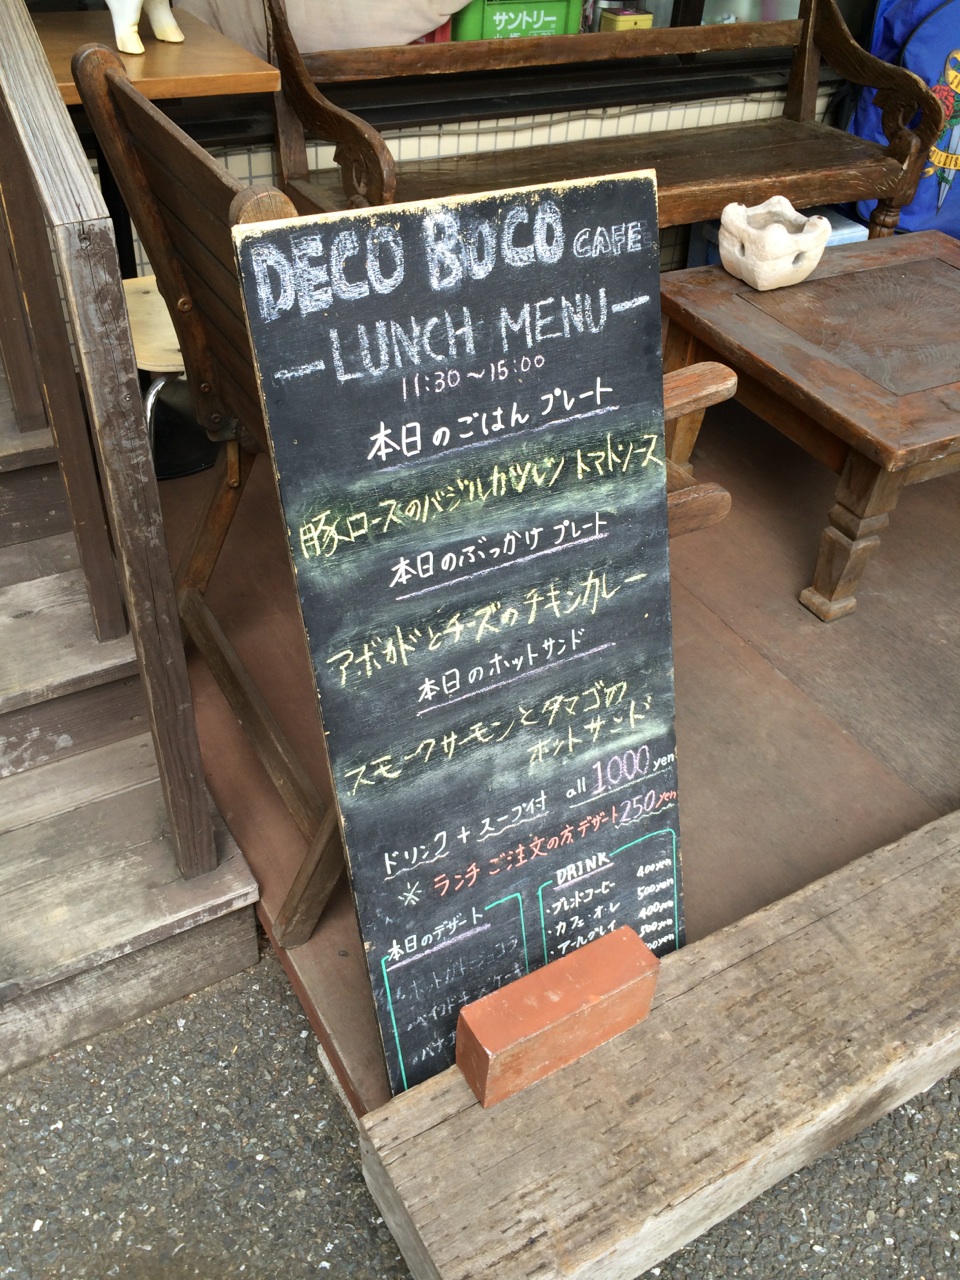 サントリー
DECO BOCO CAFE
-LUNCH MENU-
11:30~15:00
本日のごはん プレート
豚ロースのバジルカツレツ トマトソース
本日のぶっかけ プレート
アボカドとチーズのチキンカレー
本日のホットサンド
スモークサーモンとタマゴの
ホットサンド
ドリンク + スープ付 all 1000 yen
※ ランチご注文の方、デザート250yen
本日のデザート
DRINK
・ブレンドコーヒー 400yen
・カフェ・オ・レ 500yen
・アールグレイ 400yen
500yen